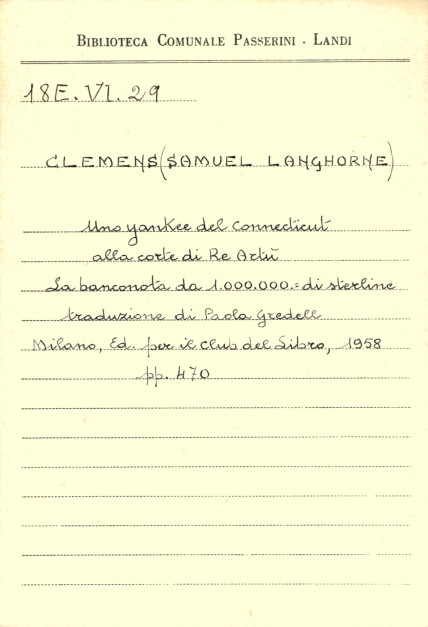 BIBLIOTECA COMUNALE PASSERINI - LANDI
18E. VI. 29
CLEMENS (SAMUEL LANGHORNE)
Uno yankee del Connecticut
alla corte di Re Artù
La banconota da 1.000.000.= di sterline
traduzione di Paola Gredell
Milano, Ed. per il Club del Libro, 1958
pp. 470